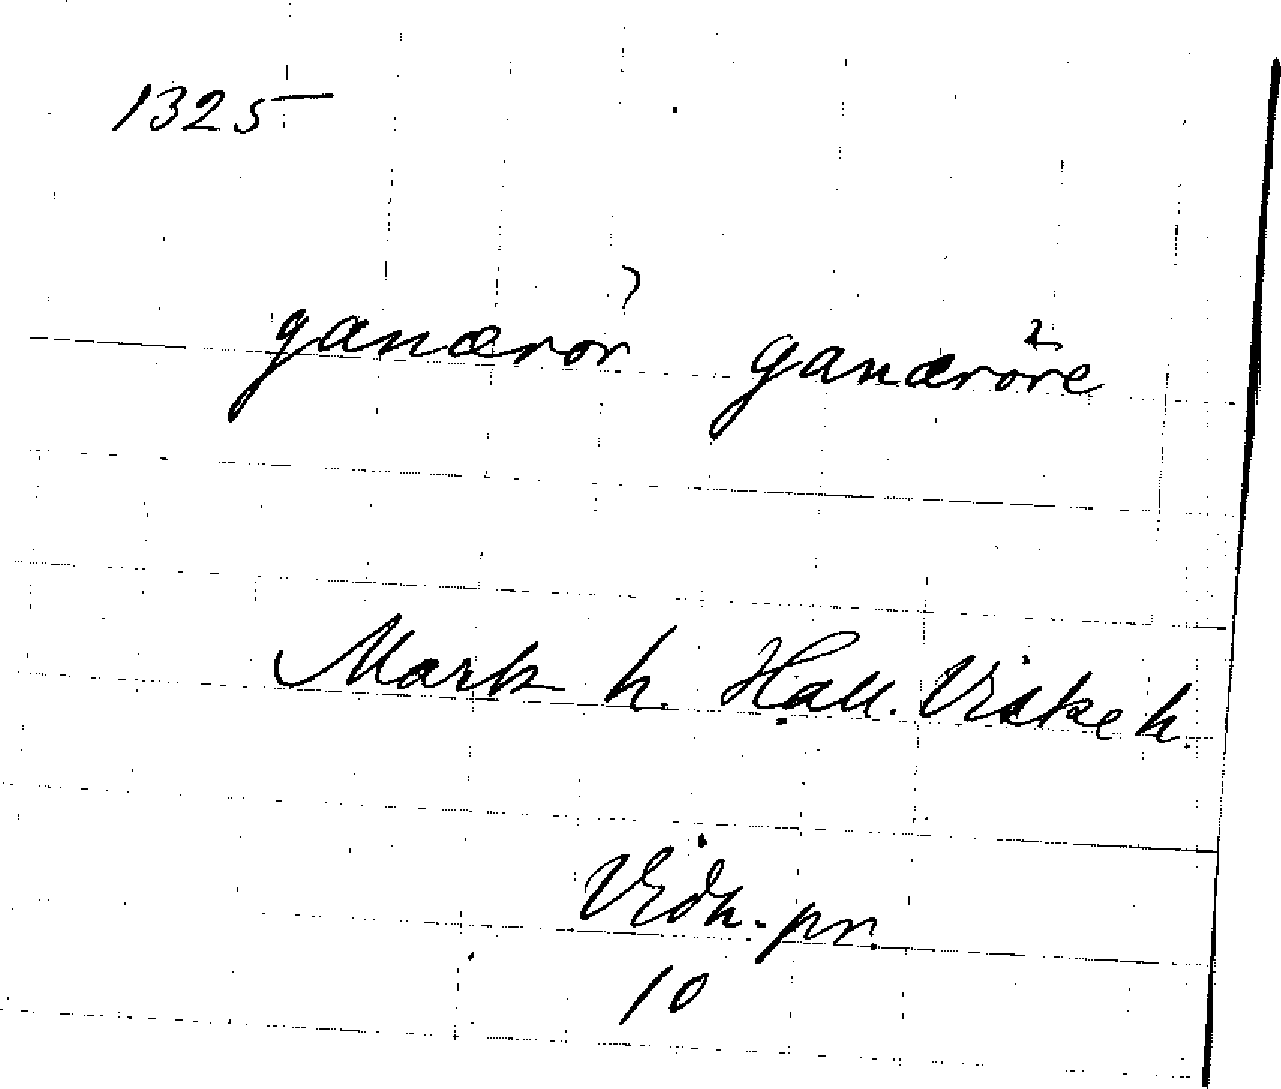 1325
ganæror ganæröre
Mark h. Hall. Viske h.
Vidh. pr.
10